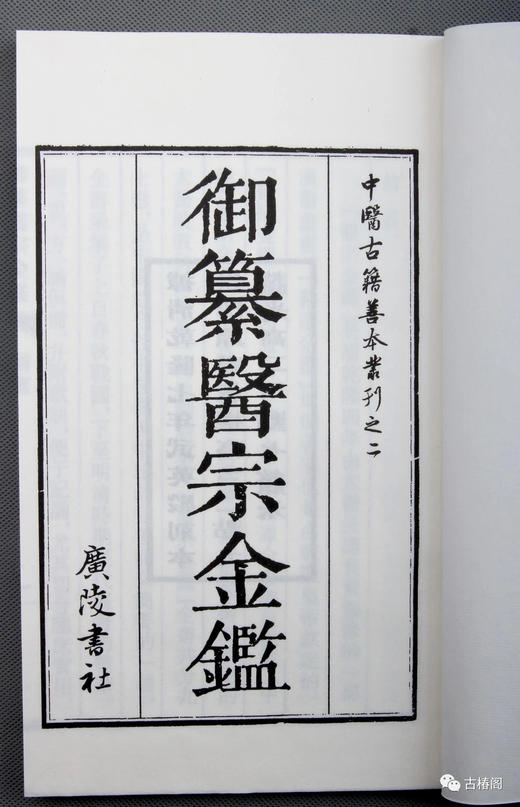 中醫古籍善本叢刊之二
御纂醫宗金鑑
廣陵書社
古椿阁